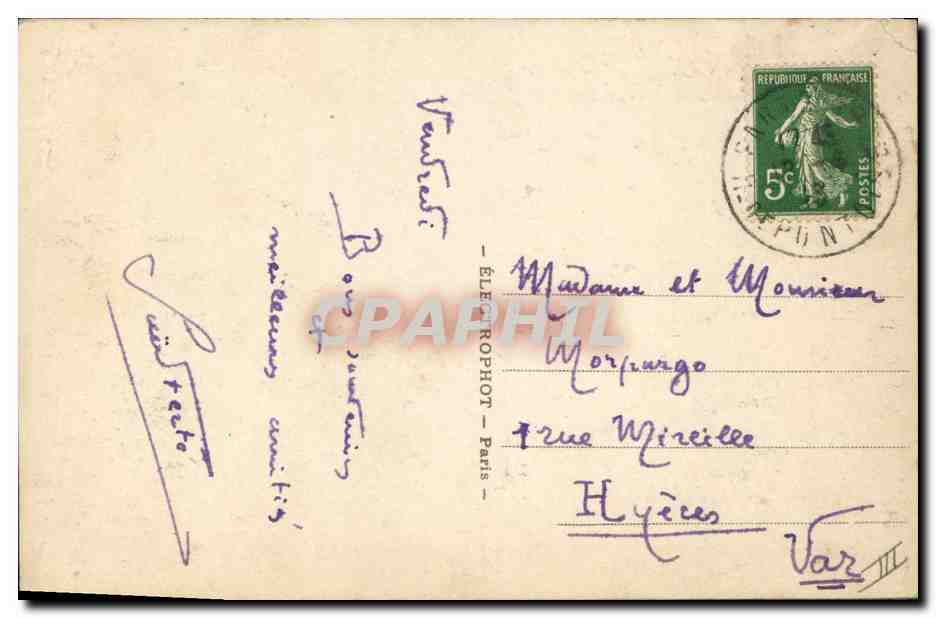 Vendredi
Bons souvenirs
et
meilleures amitiés
RÉPUBLIQUE FRANÇAISE
5c
POSTES
- ÉLECTROPHOT - Paris -
CPAPHIL
Madame et Monsieur
Morpurgo
1 rue Mireille
Hyères
Var
III